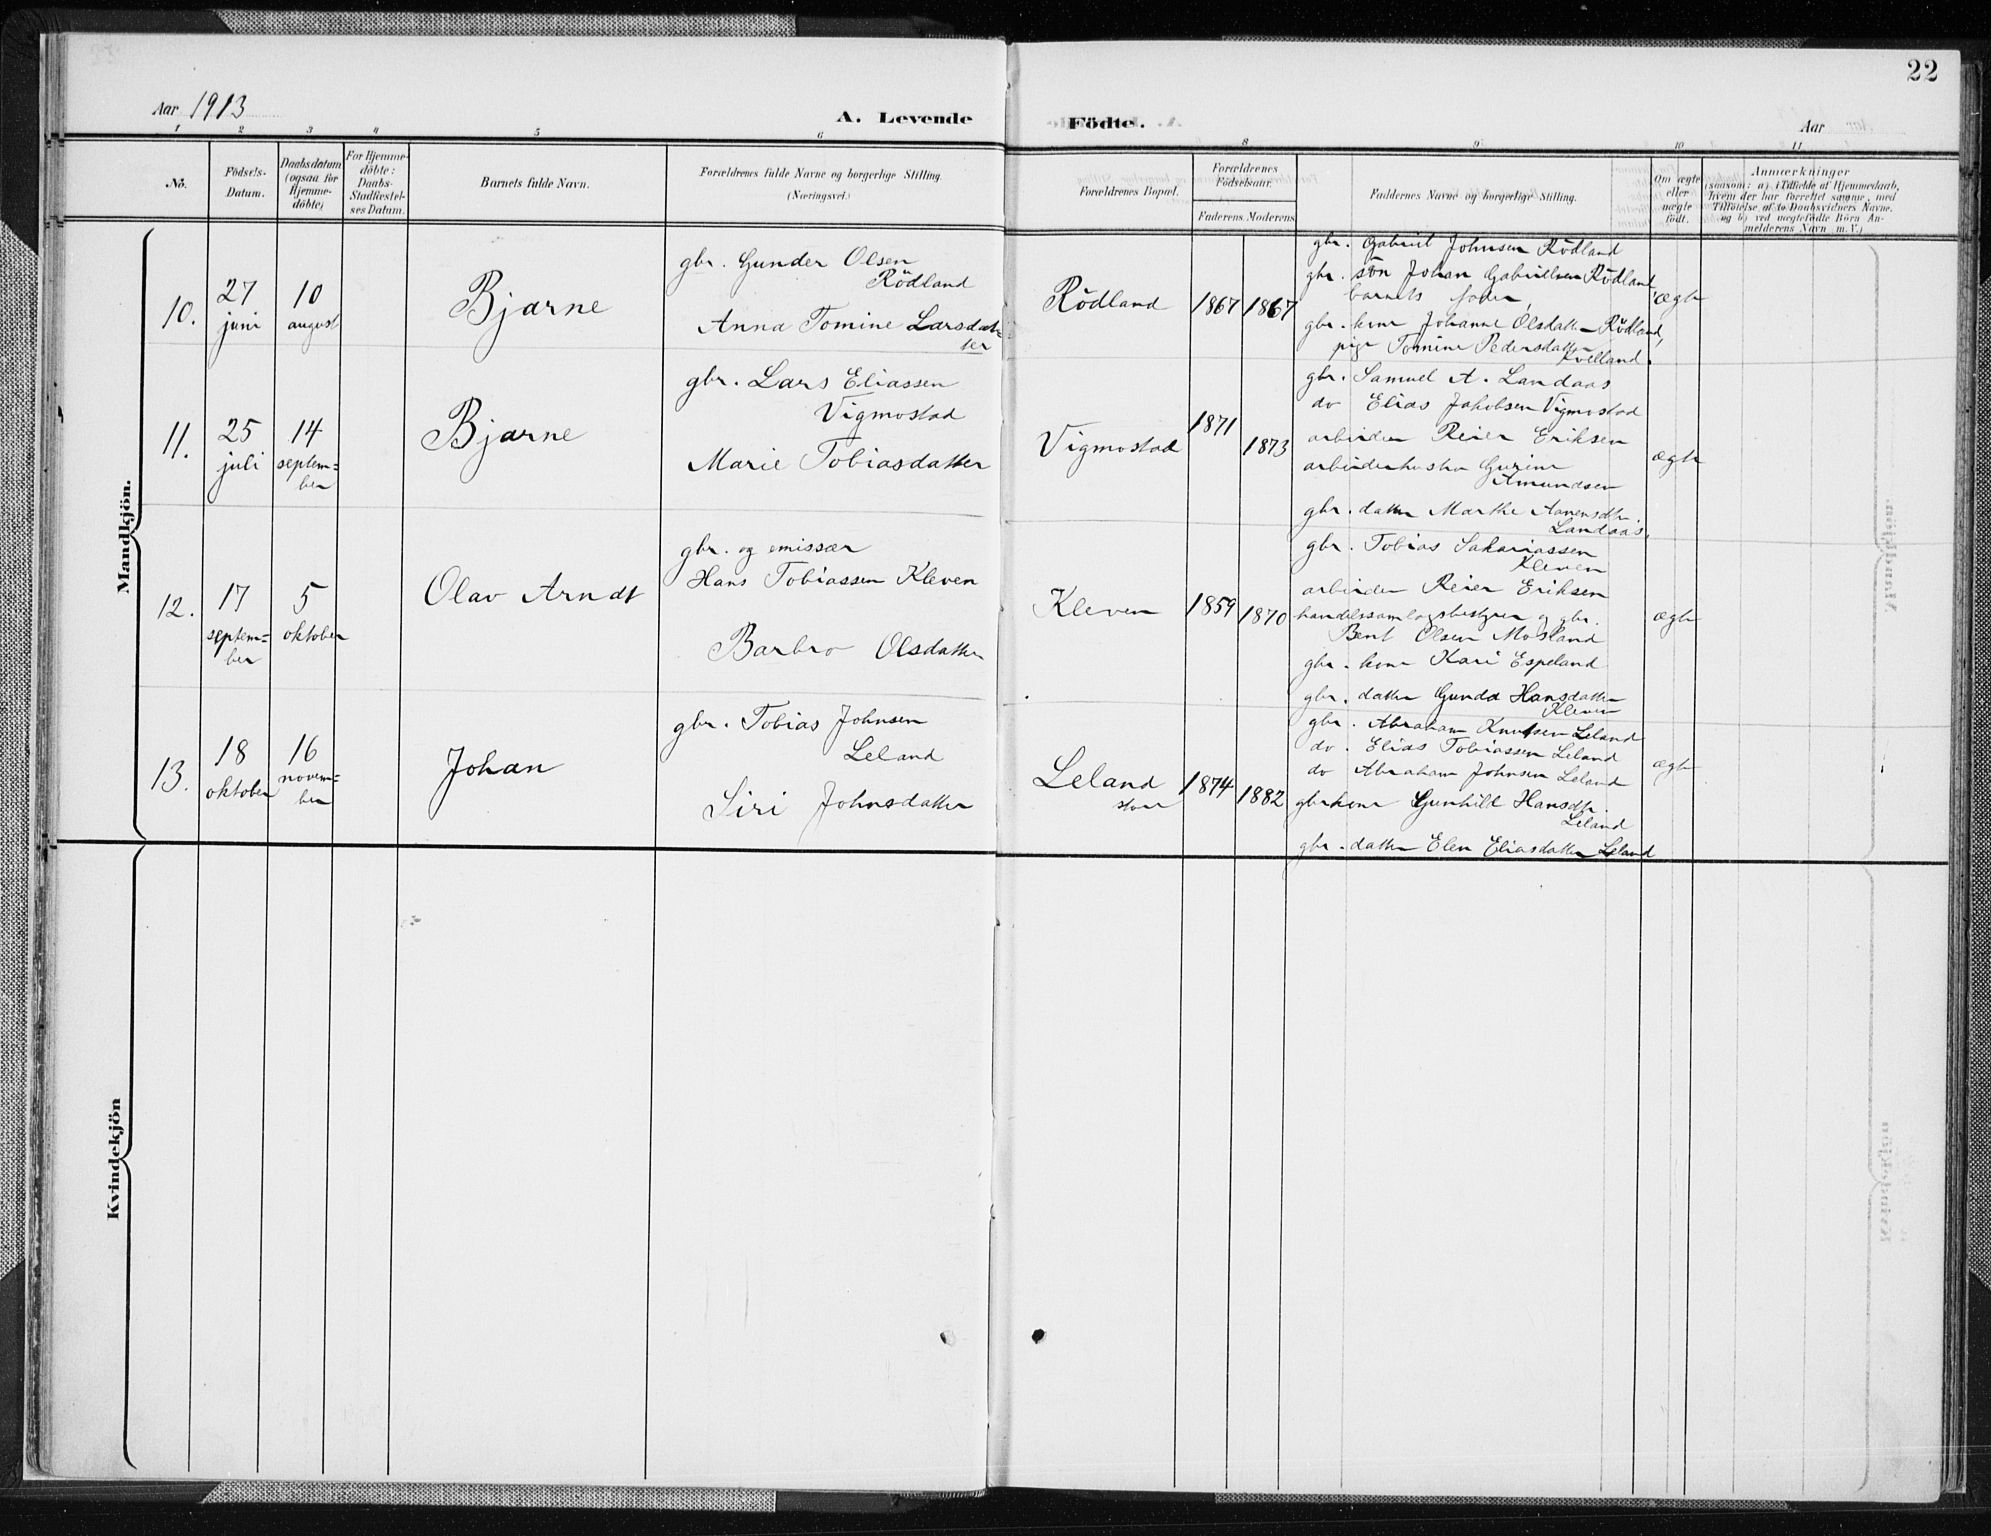 22
Aar 1913
A. Levende
Födte.
Aar
1 2 3 4 5 6 8 9 10 11
No.
Födsels-
Datum.
Daabsdatum
(ogsaa for
Hjemme-
döbte)
For Hjemme-
döbte:
Daabs-
Stadfæstel-
ses Datum.
Barnets fulde Navn.
Forældrenes fulde Navne og borgerlige Stilling.
(Næringsvei.)
Forældrenes Bopæl.
Forældrenes
Födselsaar.
Faderens. Moderens.
Faddernes Navne og borgerlige Stilling.
Om ægte
eller
uægte
födt.
Anmærkninger
(saasom: a) i Tilfælde af Hjemmedaab,
hvem der har forrettet samme, med
Tilföielse af to Daabsvidners Navne,
og b) ved uægtefödte Börn An-
melderens Navn m.V.)
Mandkjön.
10.
27
juni
10
august
Bjarne
gbr. Gunder Olsen
Rödland
Anna Tomine Larsdat-
ter
Rödland
1867
1867
gbr. Gabriel Johnsen Rödland
gbr. sön Johan Gabrielsen Rödland
barnets fader,
gbr. kone Johanne Olsdatter Rödland,
pige Tomine Pedersdatter
Kvelland.
ægte
11.
25
juli
14
septem=
ber
Bjarne
gbr. Lars Eliassen
Vigmostad
Marie Tobiasdatter
Vigmostad
1871
1873
gbr. Samuel A. Landaas
do Elias Jakobsen Vigmostad
arbeider Reier Eriksen
arbeiderhustru Gurine
Amundsen
gbr. datter Marthe Aanensdtr.
Landaas.
ægte
12.
17
septem=
ber
5
oktober
Olav Arndt
gbr. og emissær
Hans Tobiassen Kleven
Barbro Olsdatter
Kleven
1859
1870
gbr. Tobias Sakariassen
Kleven
arbeider Reier Eriksen
handelssamlagsbestyrer og gbr.
Bent Olsen Mosland
gbr. kone Kari Espeland
gbr. datter Gunda Hansdatter
Kleven
ægte
13.
18
oktober
16
novem=
ber
Johan
gbr. Tobias Johnsen
Leland
Siri Johnsdatter
Leland
store
1874
1882
gbr. Abraham Knutsen Leland
do. Elias Tobiassen Leland
do Abraham Johnsen Leland
gbrkone Gunhild Hansdtr.
Leland
gbr. datter Elen Eliasdatter Leland
ægte
Kvindekjön